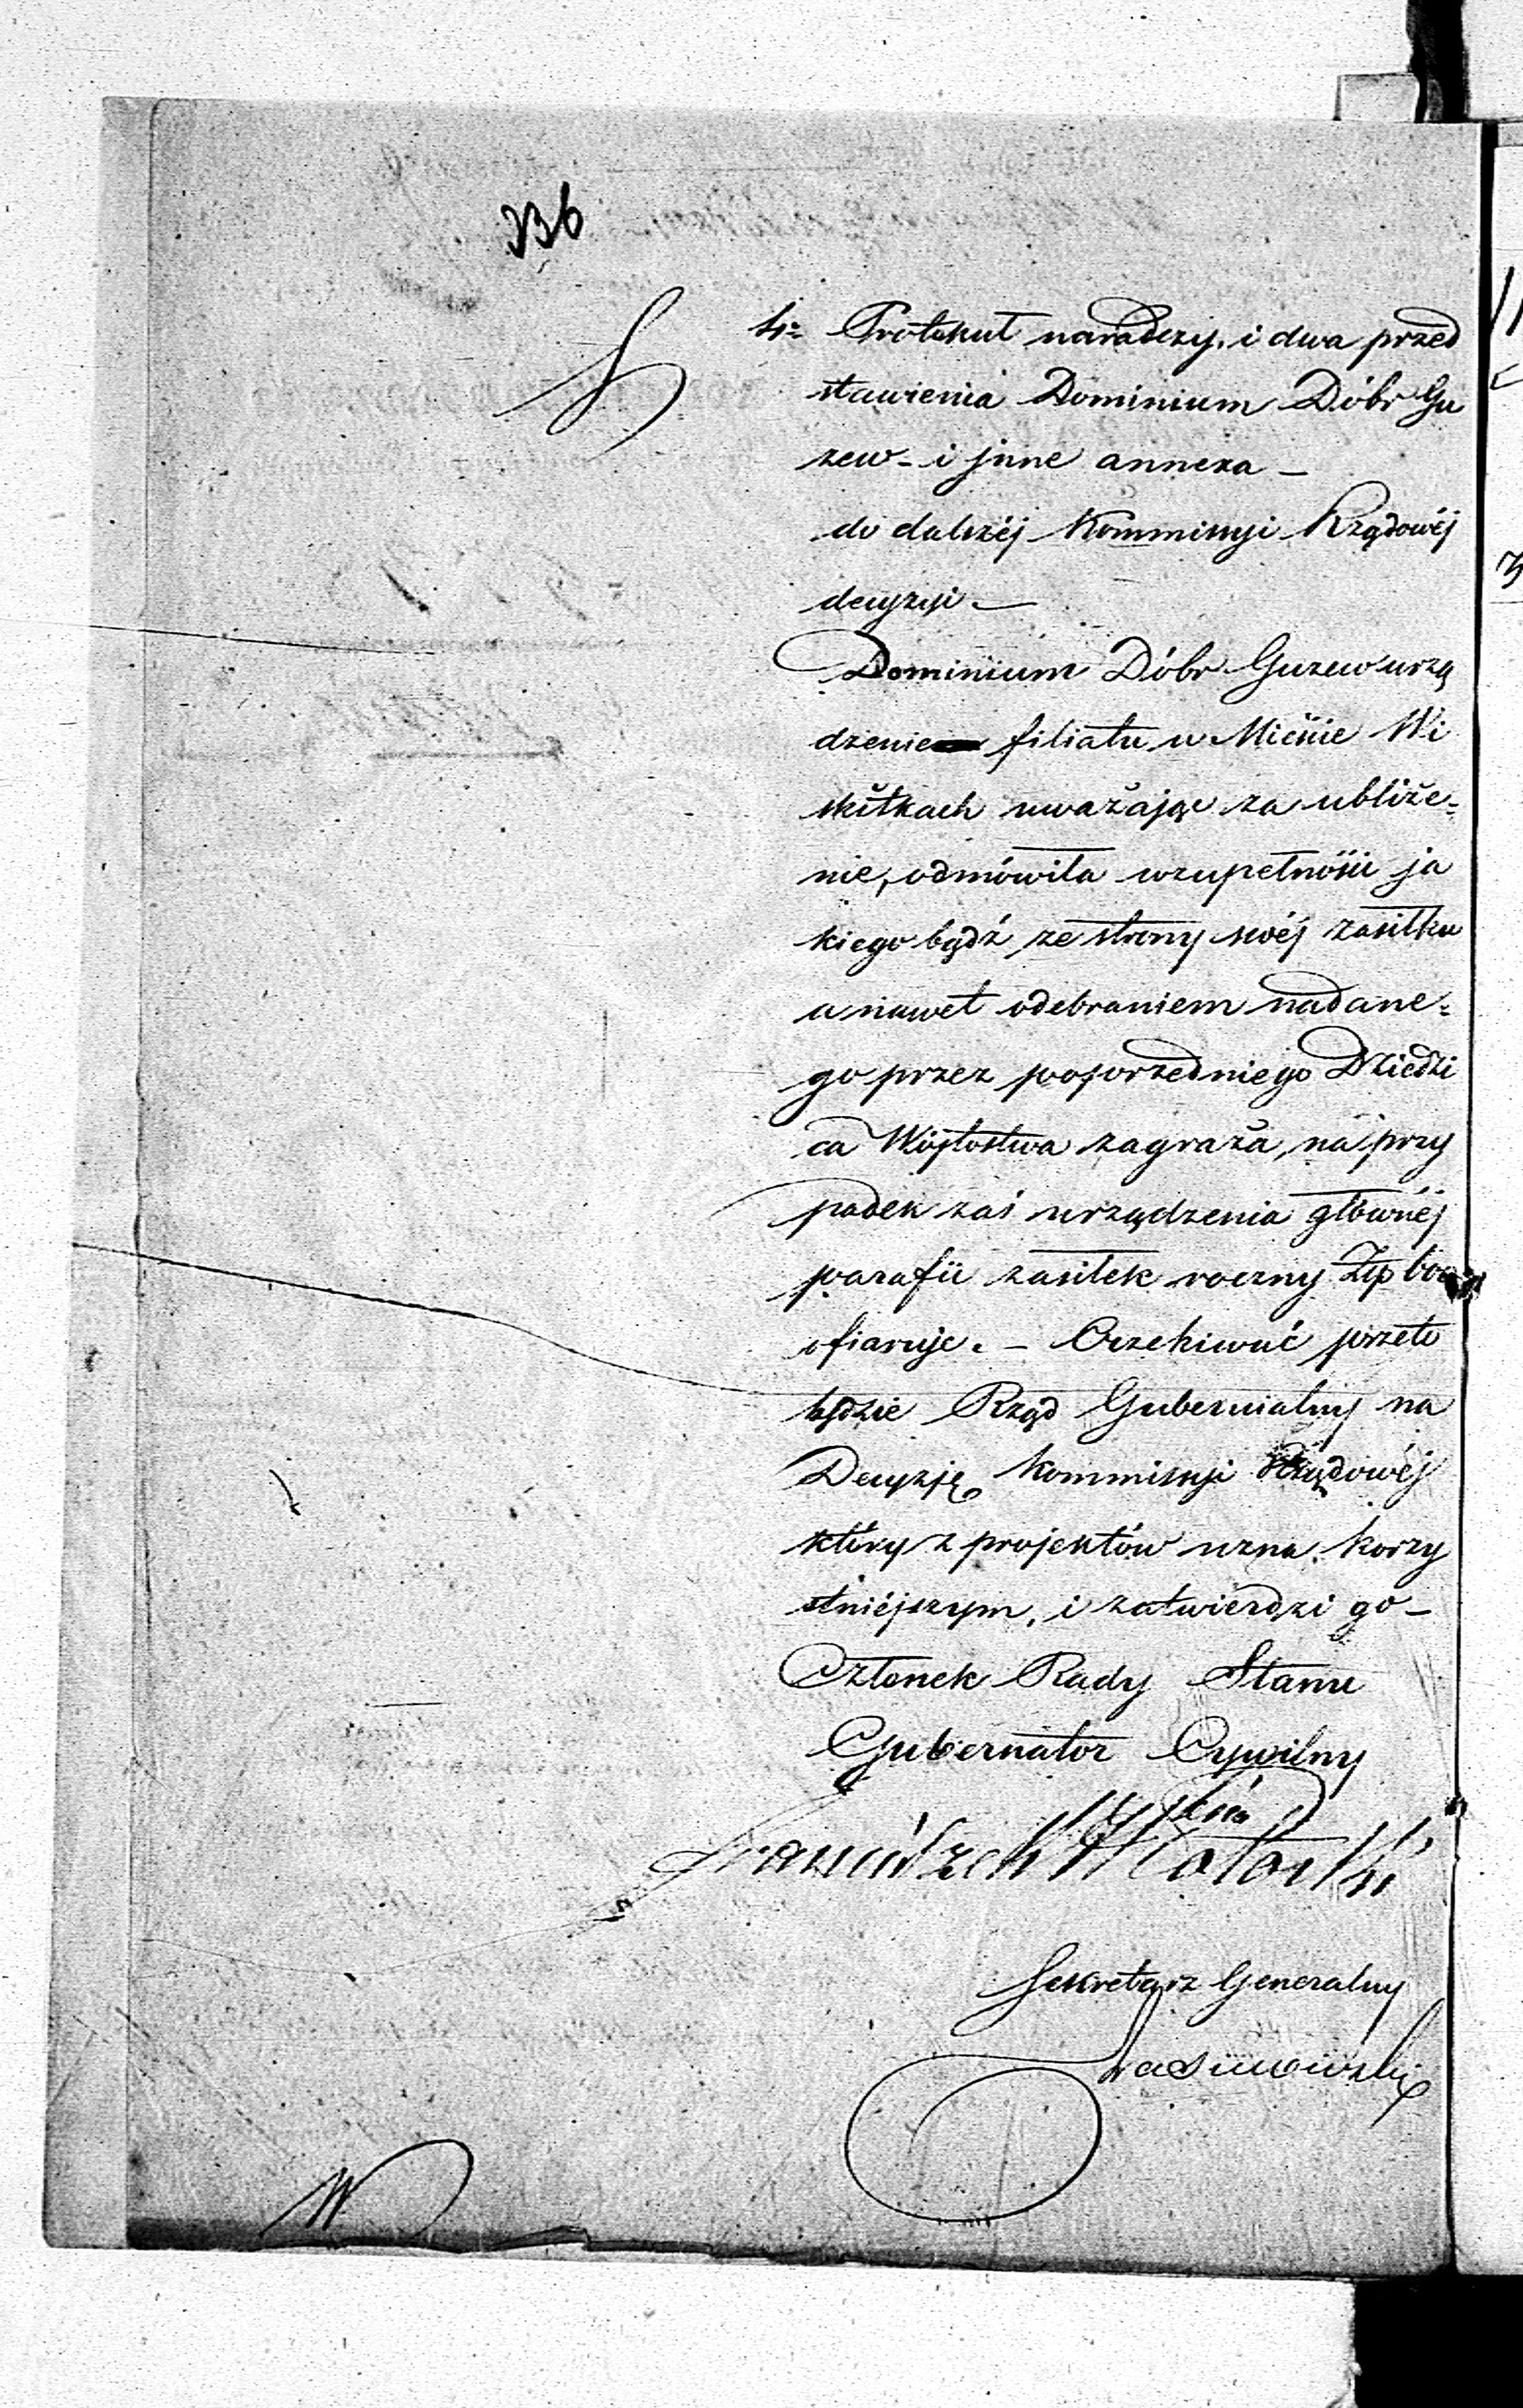 336
4º Protokuł naradczy, i dwa przed
stawienia Dominium Dóbr Gu
zew - i jnne annexa -
do dalszéj Kommissyi Rządowéj
decyzyi. -
Dominium Dóbr Guzew urzą
dzenie filiału w Mieście Wi
skitkach uważając za ubliże=
nie, odmówiła wzupełności ja
kiego bądź ze strony swéj zasiłku
a nawet odebraniem nadane=
go przez poprzedniego Dziedzi
ca Wójtostwa zagraża, na przy
padek zaś urządzenia głównéj
parafii zasiłek roczny Złp
ofiaruje. - Oczekiwać przeto
będzie Rząd Gubernialny na
Decyzję Kommissyi Rządowéj
który z projektów uzna korzy
stniéjszym, i zatwierdzi go -
Członek Rady Stanu
Gubernator Cywilny
Sekretarz Generalny